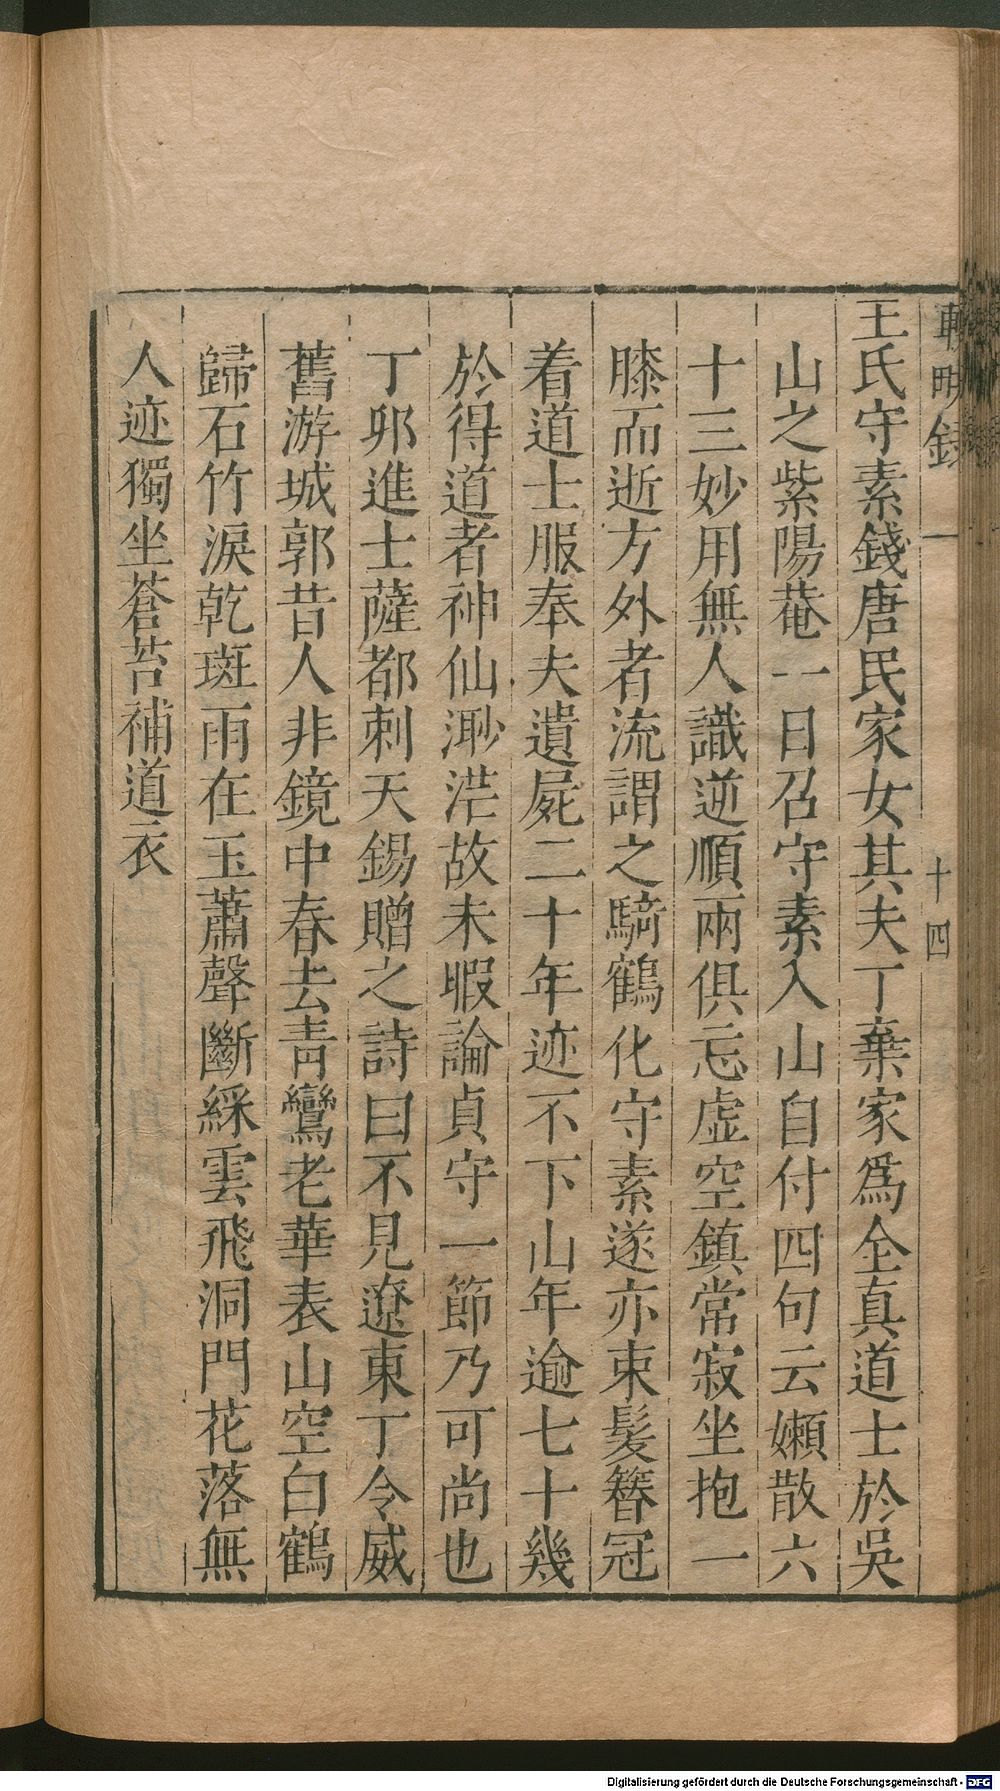 車明錄 一 十四
王氏守素錢唐民家女其夫丁棄家爲全真道士於吳
山之紫陽菴一日召守素入山自付四句云嬾散六
十三妙用無人識逆順兩俱忘虛空鎮常寂坐抱一
膝而逝方外者流謂之騎鶴化守素遂亦束髮簪冠
着道士服奉夫遺屍二十年迹不下山年逾七十幾
於得道者神仙渺茫故未暇論貞守一節乃可尚也
丁卯進士薩都剌天錫贈之詩曰不見遼東丁令威
舊游城郭昔人非鏡中春去青鸞老華表山空白鶴
歸石竹淚乾斑雨在玉蕭聲斷綵雲飛洞門花落無
人迹獨坐蒼苔補道衣
Digitalisierung gefördert durch die Deutsche Forschungsgemeinschaft - DFG